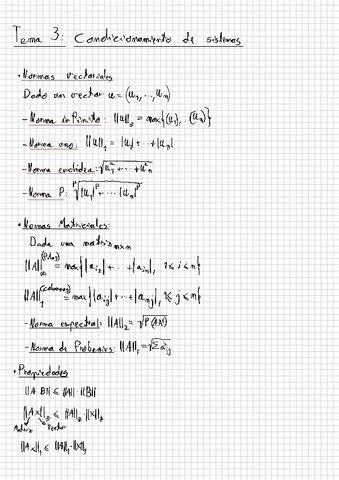 Tema 3: Condicionamiento de sistemas
• Normas vectoriales
Dado un vector u = (u₁, ..., uₙ)
- Norma infinito: ||u||∞ = max{|u₁|, ... |uₙ|}
- Norma uno: ||u||₁ = |u₁| + ... + |uₙ|
- Norma euclídea: √u₁² + ... + uₙ²
- Norma P: ᵖ√|u₁|ᵖ + ... |uₙ|ᵖ
• Normas Matriciales:
Dada una matriz mxn
||A||∞ (filas) = max{|aᵢ₁| + ... + |aᵢₙ|, 1 ≤ i ≤ n}
||A||₁ (columnas) = max{|a₁ⱼ| + ... + |aₙⱼ|, 1 ≤ j ≤ n}
- Norma espectral: ||A||₂ = √ρ(A·Aᵗ)
- Norma de Frobenius: ||A|| = √Σ a²ᵢⱼ
• Propiedades
||A·B|| ≤ ||A|| · ||B||
||A x|| ≤ ||A|| · ||x||
Matriz Vector
||A x||₁ ≤ ||A||₁ · ||x||₁